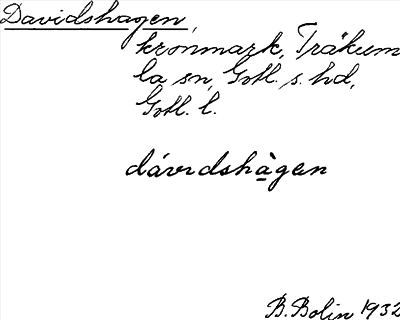 Davidshagen,
kronmark, Träkum
la sn, Gotl. s. hd,
Gotl. l.
dávιdshàgɑn
B. Bolin 1932